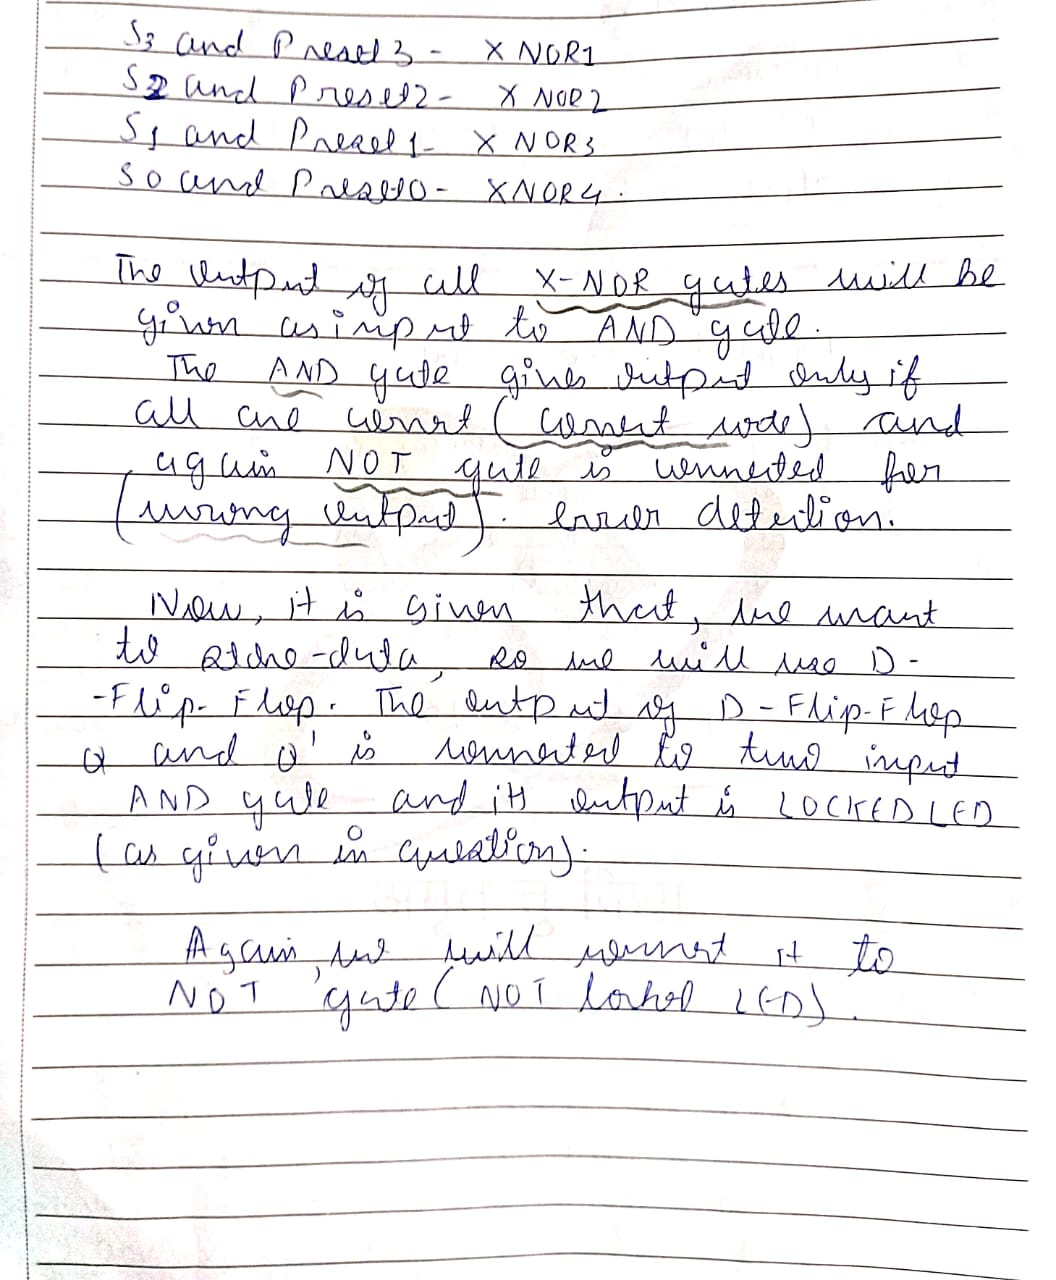 S3 and Preset 3 - X NOR1
S2 and Preset2 - X NOR 2
S1 and Preset 1- X NOR3
S0 and Preset0 - XNOR4.
The output of all X-NOR gates will be
given as input to AND gate.
The AND gate gives output only if
all are correct (correct code) and
again NOT gate is connected for
(wrong output). error detection.
Now, it is given that, we want
to store-data, so we will use D-
-Flip-Flop. The output of D-Flip-Flop
Q and Q' is connected to two input
AND gate and its output is LOCKED LED
(as given in question).
Again, we will connect it to
NOT gate ( NOT locked LED).